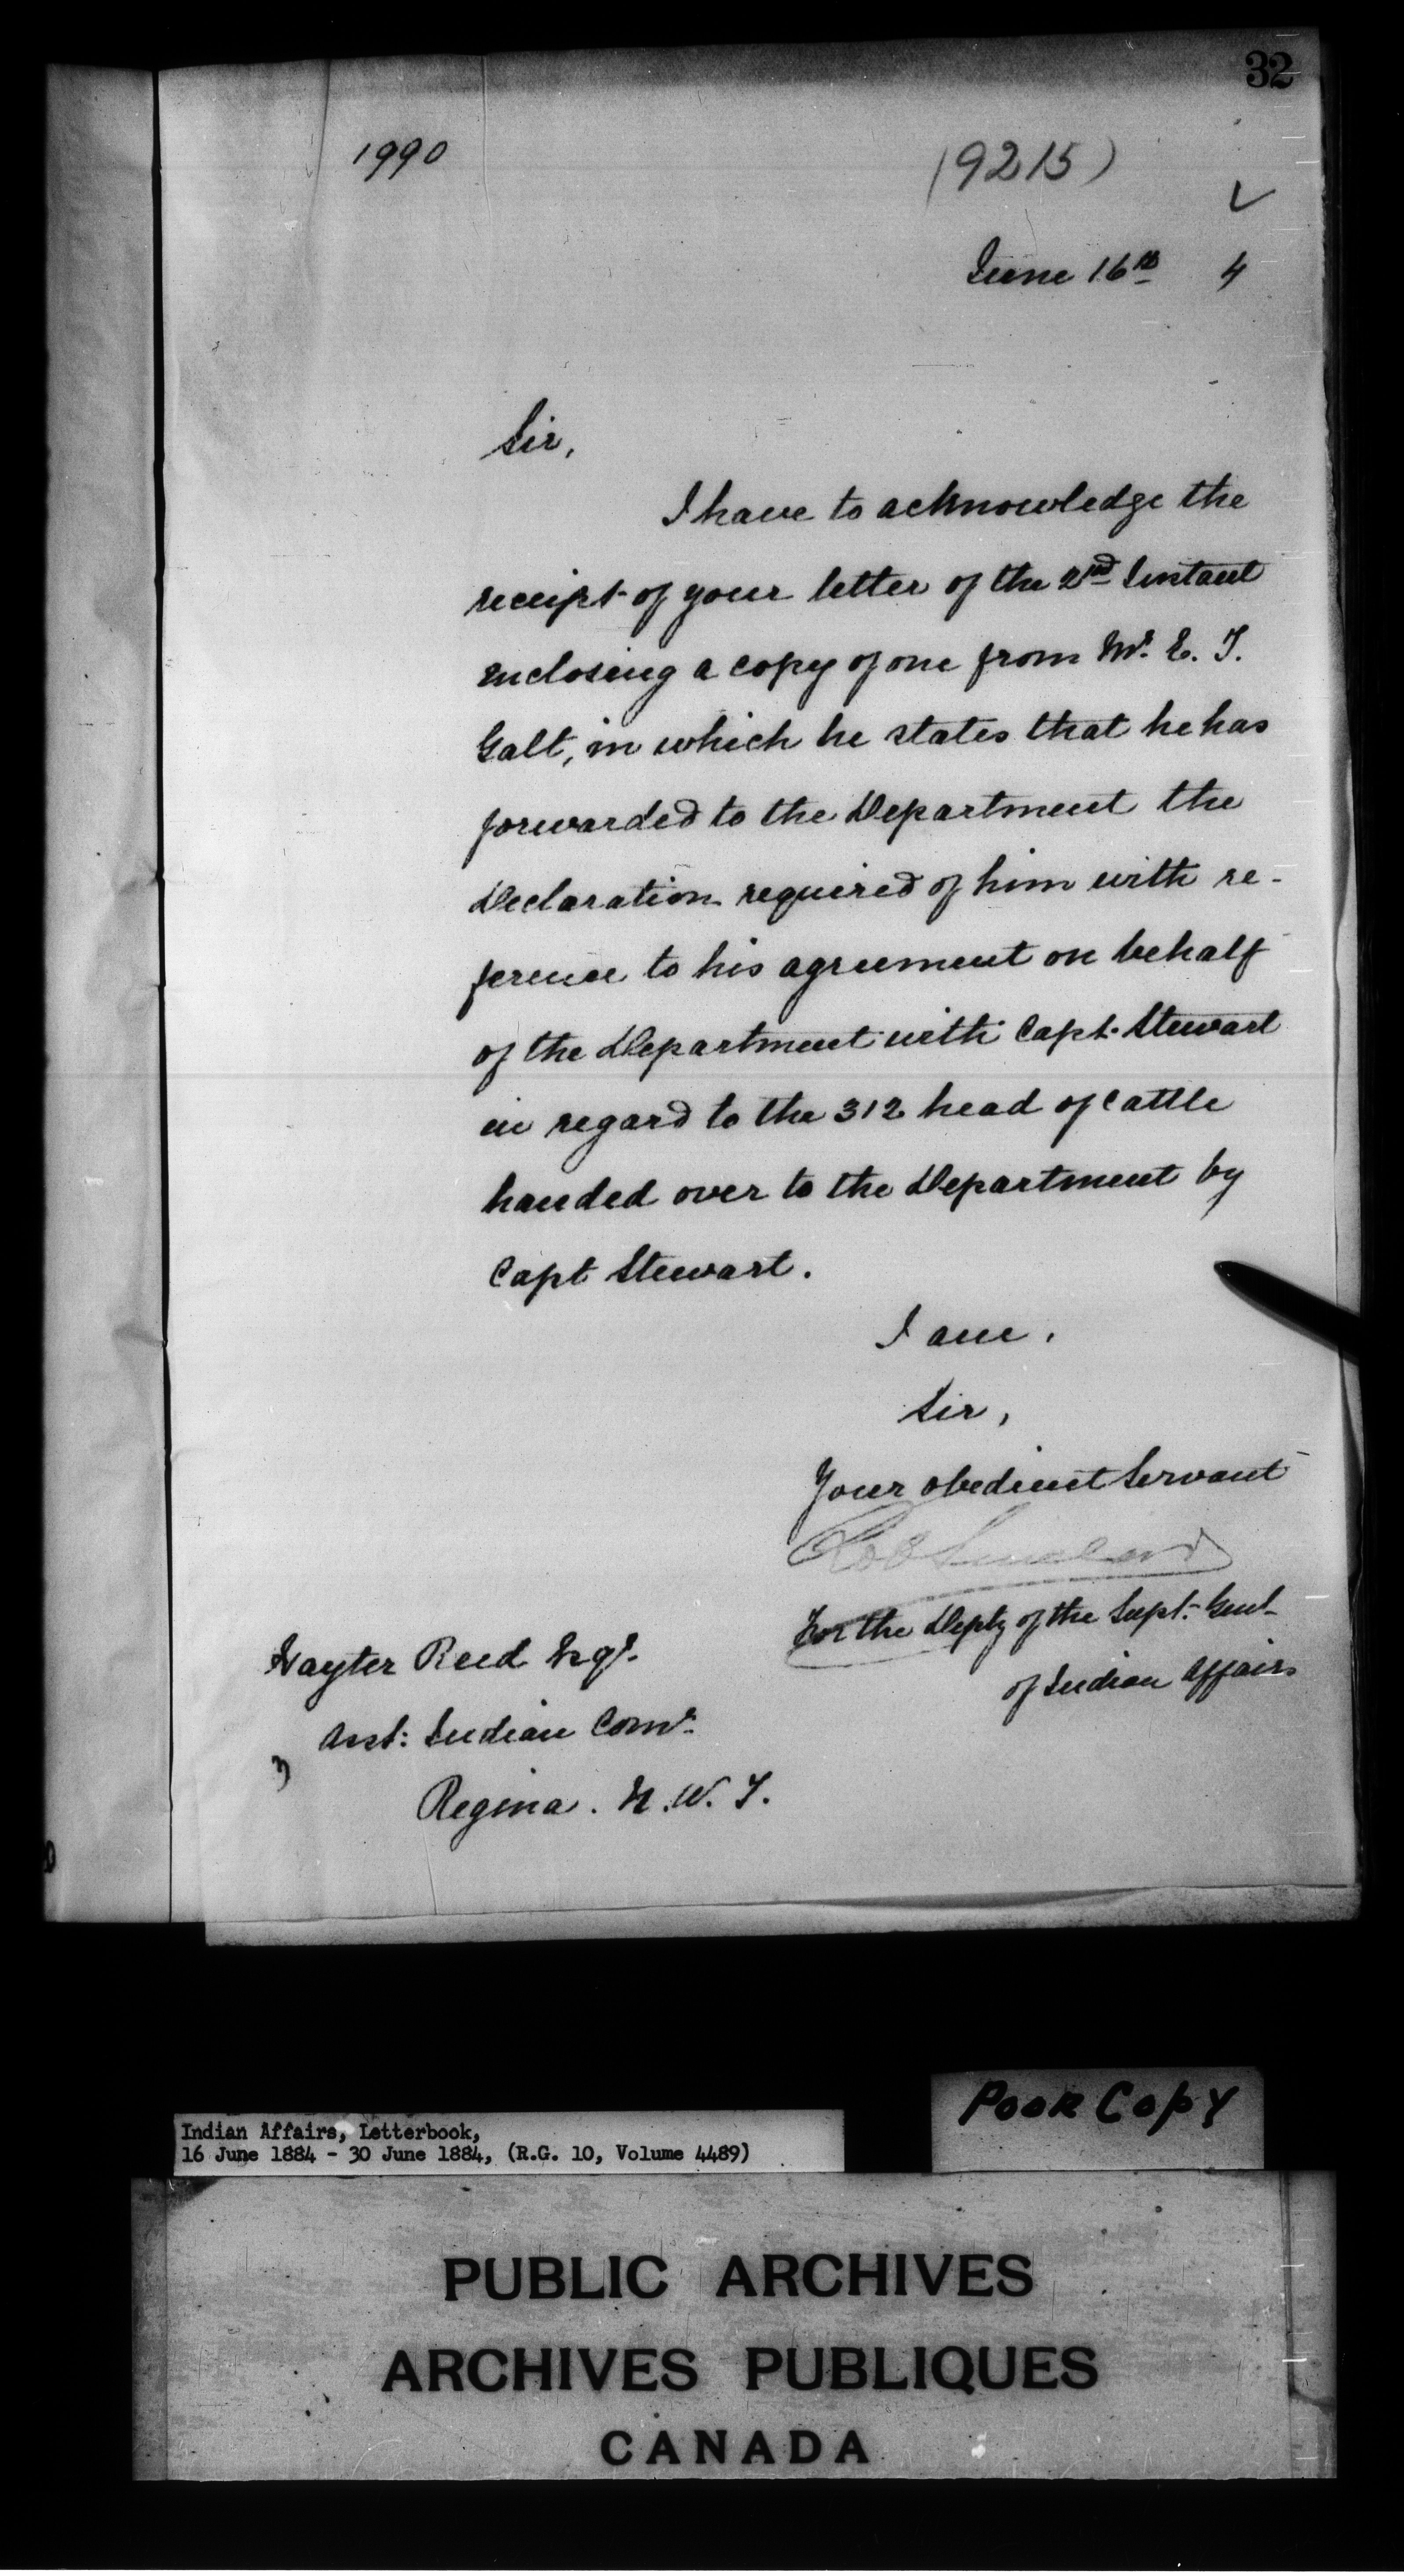 32
1990
(9215)
June 16th 4
Sir,
I have to acknowledge the
receipt of your letter of the 2nd Instant
enclosing a copy of one from Mr. E. T.
Galt, in which he states that he has
forwarded to the Department the
Declaration required of him with re-
ference to his agreement on behalf
of the Department with Capt. Stewart
in regard to the 312 head of Cattle
handed over to the Department by
Capt Stewart.
I am,
Sir,
Your obedient Servant
Rob Sinclair
For the Depty of the Supt. Genl
of Indian Affairs
Hayter Reed Esqr.
Asst: Indian Comr.
Regina. N. W. T.
Poor Copy
Indian Affairs, Letterbook,
16 June 1884 - 30 June 1884, (R.G. 10, Volume 4489)
PUBLIC ARCHIVES
ARCHIVES PUBLIQUES
CANADA